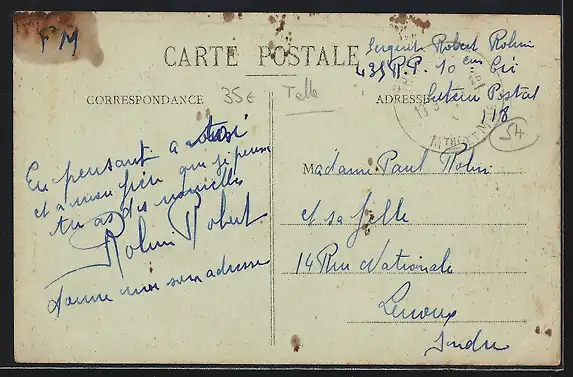 F M
CARTE POSTALE
Sergent Robert Rolin
435 R.P. 10 em Cie
Secteur Postal
118
CORRESPONDANCE
35€
Telle
ADRESSE
54
En pensant a toi
et a mon frère que je pense
tu as des nouvelles
Rolin Robert
donne moi son adresse
Madame Paul Rolin
et sa fille
14 Rue Nationale
Leroux
Indre